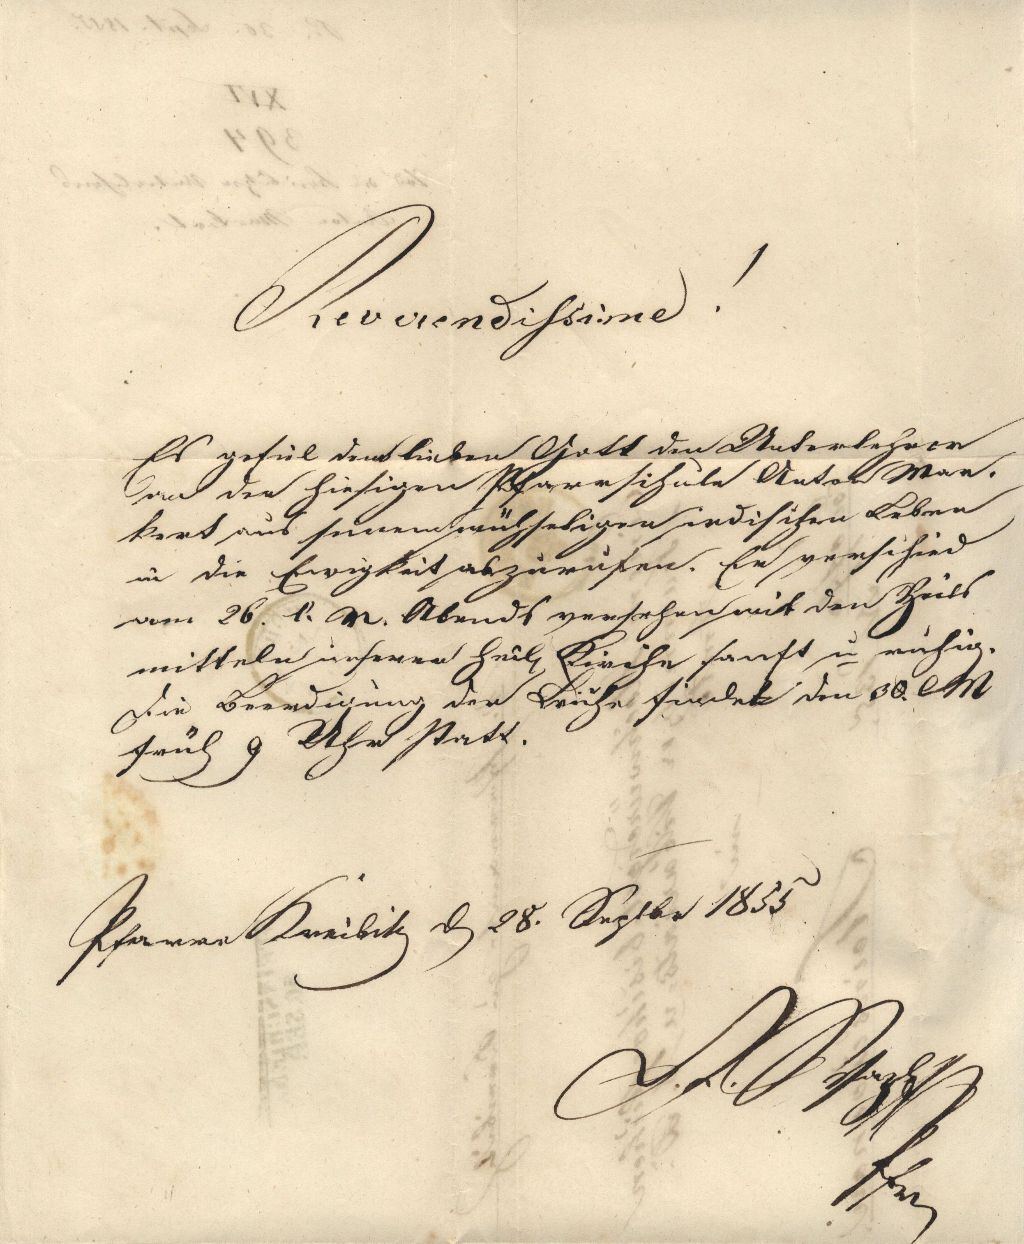 Reverendissime!
Es gefiel dem lieben Gott den Unterlehrer
an der hiesigen Pfarrschule Anton Mar-
kert aus seinem mühseligen irdischen Leben
in die Ewigkeit abzurufen. Er verschied
am 26. l. M. Abends versehen mit den Heils
mitteln unserer heil Kirche sanft u ruhig.
Die Beerdigung der Leiche findet den 30. l M
früh 9 Uhr statt.
Pfarre Kreibitz d 28. Septbr 1855